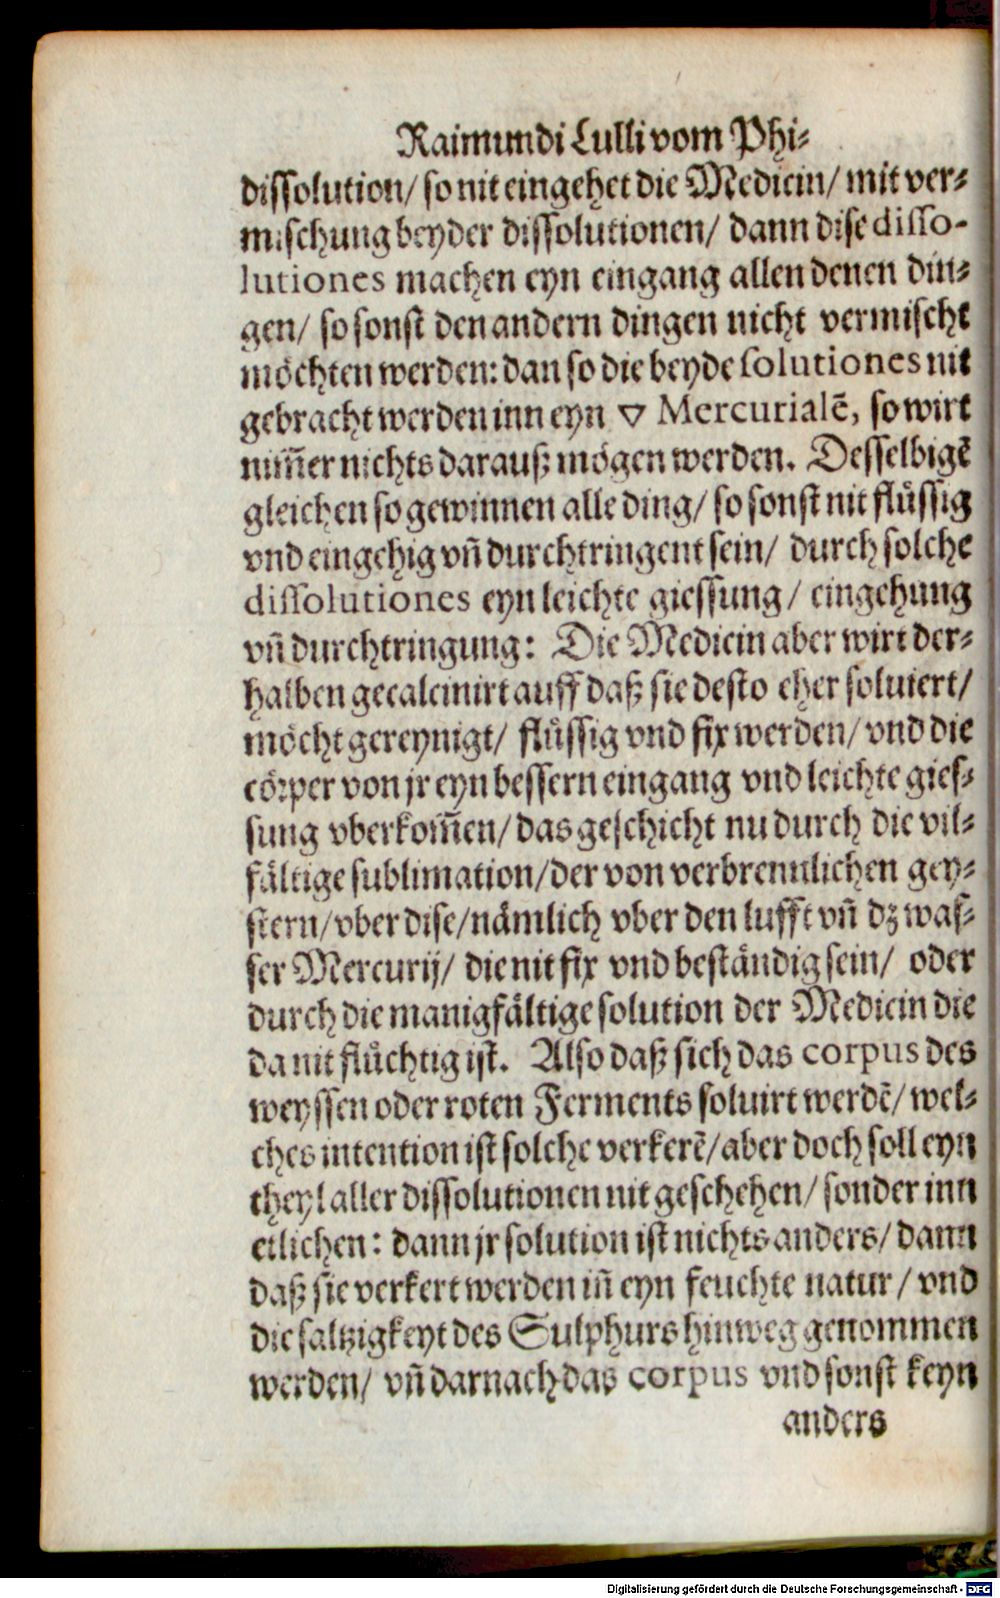 Raimundi Lulli vom Phi⸗
dissolution/ so nit eingehet die Medicin/ mit ver⸗
mischung beyder dissolutionen/ dann dise disso-
lutiones machen eyn eingang allen denen din⸗
gen/ so sonst den andern dingen nicht vermischt
möchten werden: dan so die beyde solutiones nit
gebracht werden inn eyn ▽ Mercurialē, so wirt
nim̃er nichts darauß mögen werden. Desselbigē
gleichen so gewinnen alle ding/ so sonst nit flüssig
vnd eingehig vñ durchtringent sein/ durch solche
dissolutiones eyn leichte giessung/ eingehung
vñ durchtringung: Die Medicin aber wirt der⸗
halben gecalcinirt auff daß sie desto eher soluiert/
möcht gereynigt/ flüssig vnd fix werden/ vnd die
cörper von jr eyn bessern eingang vnd leichte gies⸗
sung vberkom̃en/ das geschicht nu durch die vil⸗
fältige sublimation/ der von verbrennlichen gey⸗
stern/ vber dise/ nämlich vber den lufft vñ dz was⸗
ser Mercurij/ die nit fix vnd beständig sein/ oder
durch die manigfältige solution der Medicin die
da nit flüchtig ist. Also daß sich das corpus des
weyssen oder roten Ferments soluirt werdē/ wel⸗
ches intention ist solche verkerē/ aber doch soll eyn
theyl aller dissolutionen nit geschehen/ sonder inn
etlichen: dann jr solution ist nichts anders/ dann
daß sie verkert werden iñ eyn feuchte natur/ vnd
die saltzigkeyt des Sulphurs hinweg genommen
werden/ vñ darnach das corpus vnd sonst keyn
anders
Digitalisierung gefördert durch die Deutsche Forschungsgemeinschaft - DFG